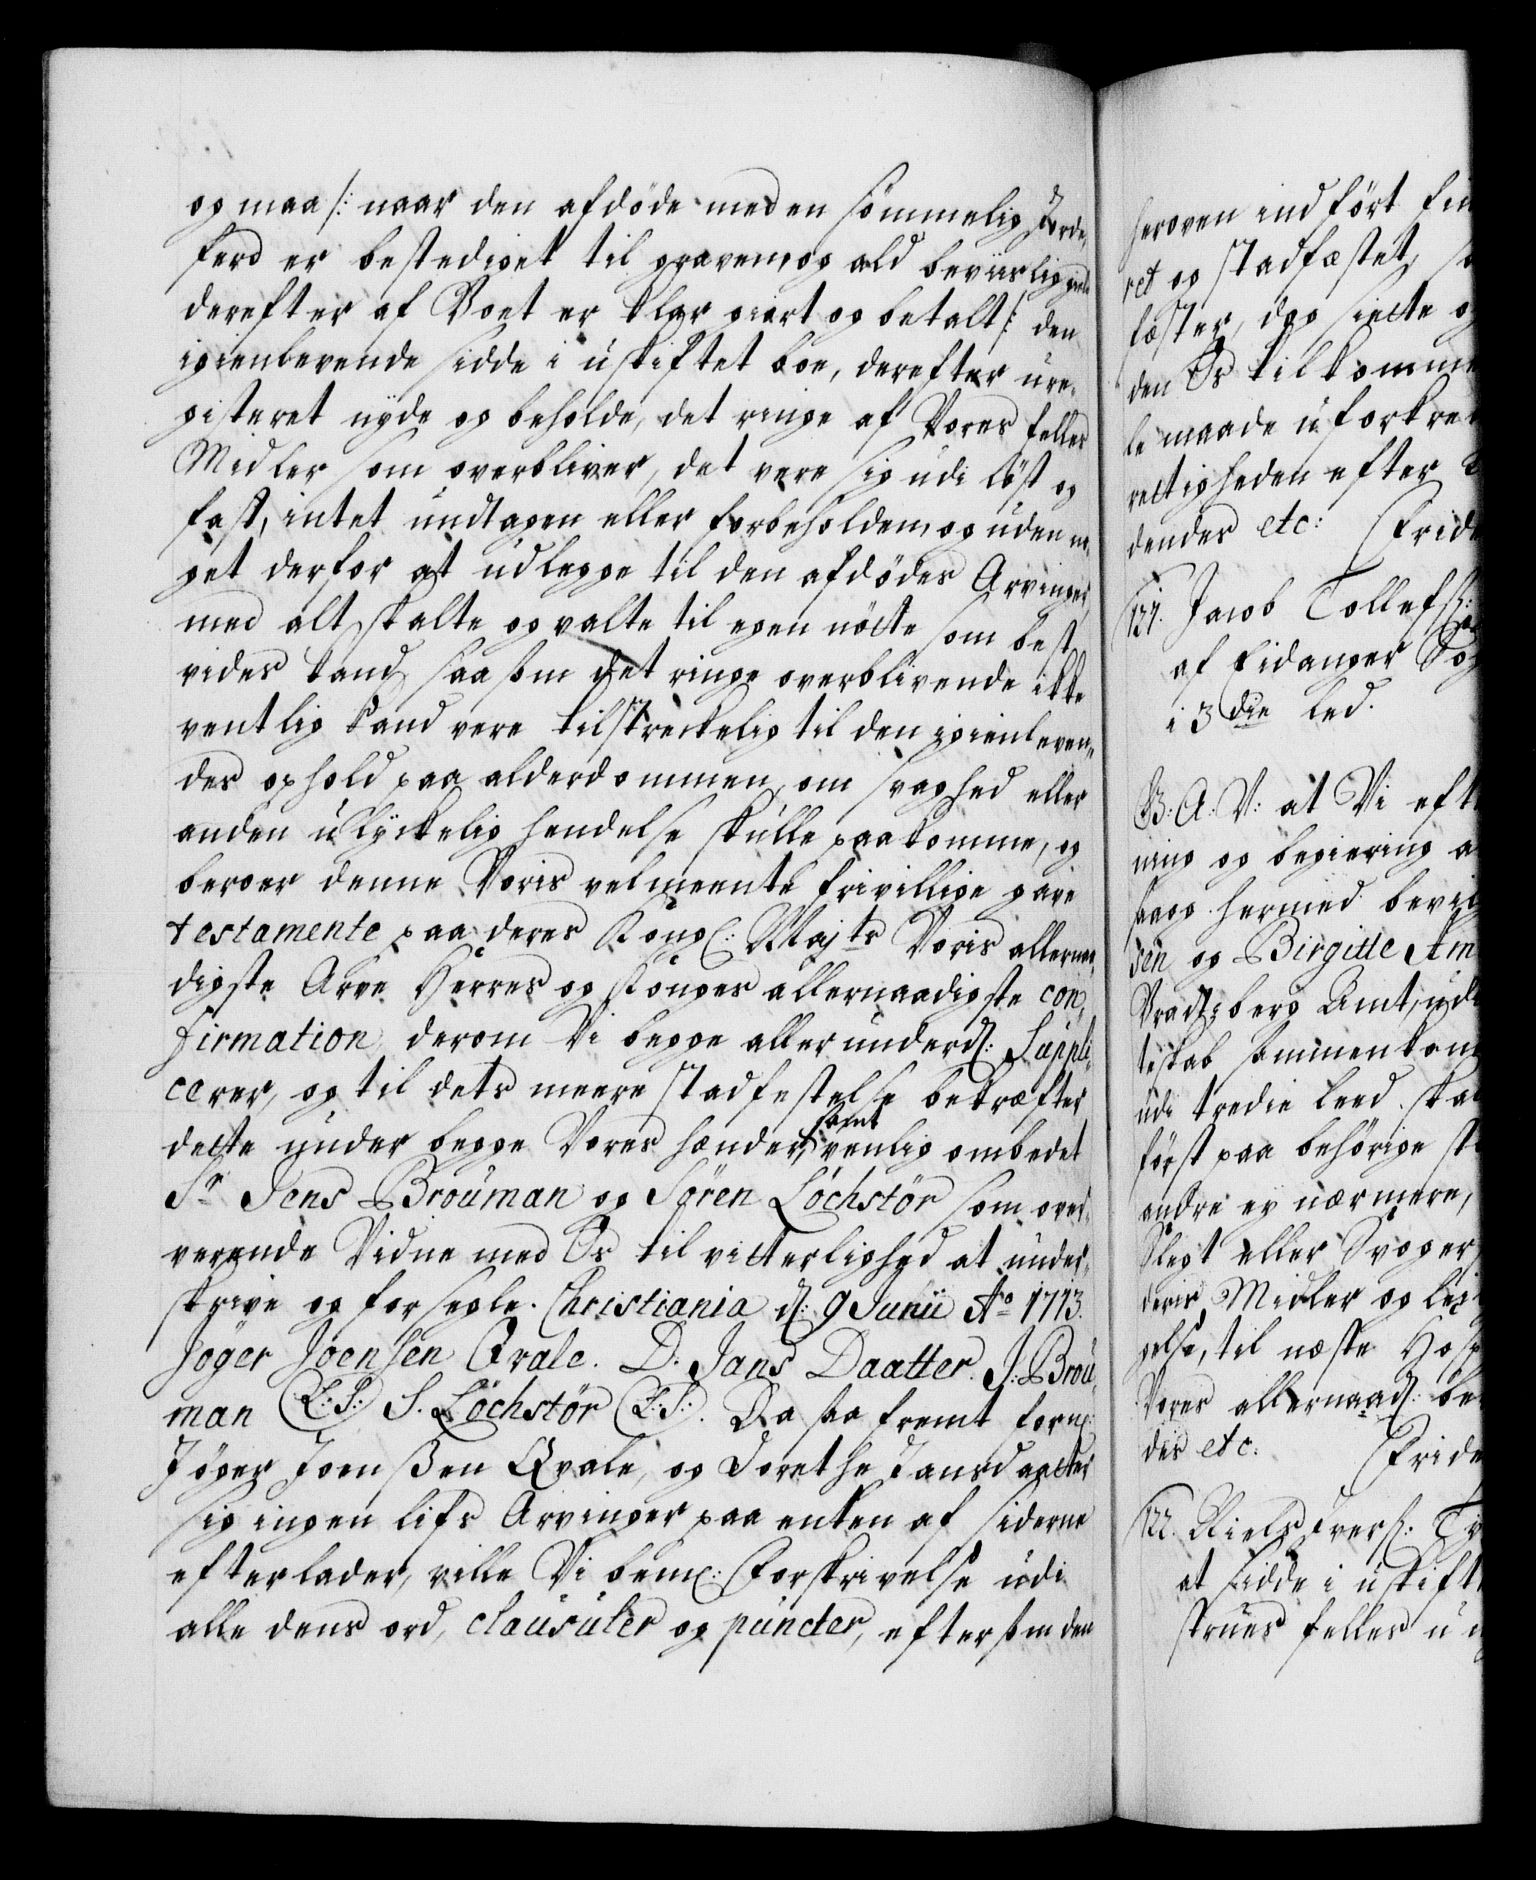 og maa /: naar den afdöde med en sömmelig Jorde,
ferd er bestediget til graven, og ald beviislig gield
derefter af Boet er klar giort og betalt :/ den
igienlevende sidde i uskiftet boe, derefter ure,
gisteret nyde og beholde, det ringe af Vores felles
Midler som overbliver, det vere sig udi löst og
fast, intet undtagen eller forbeholden, og uden no,
get derfor at udlegge til den afdödes Arvinger,
med alt skalte og valte til egen nötte som best
vides kand, saasom det ringe overblivende ikke
ventlig kand vere tilstreckelig til den igienleven,
des ophold paa alderdommen, om svaghed eller
anden ulyckelig hendelse skulle paakomme, og
beroer denne Voris velmeente frivillige gave
testamente paa deres Kongl: Majts Voris allernaa,
digste Arve Herres og Konges allernaadigste con,
firmation, derom Vi begge allerunderd: Suppli,
cerer, og til dets meere stadfestelse bekræfter
dette under begge Vores hænder, samt venlig ombedet
Sr Jens Brouman og Sören Löchstör som over,
verende Vidne med Os til vitterlighed at under,
skrive og forsegle. Christiania d: 9 Junii Ao 1713.
Jöger Joensen Qvale. D. Jans Daatter. J: Brou,
man (L:S:) S. Löchstör (L:S:). Da saa fremt forn:
Jöger Joenssen Qvale, og Dorethe Jansdaatter
sig ingen lifs Arvinger paa enten af siderne
efterlader, ville Vi bem: Forskrivelse udi
alle dens ord, clausuler og puncter, eftersom den
heroven indfört fin
ret og stadfæstet, s
fæster, dog siette og
den Os tilkomme
le maade uforkren
rettigheden efter
dendes etc: Frid
121. Jacob Tollefs:
af Eidanger Sog
i 3die led.
B: A: V: at Vi eft
ning og begiering a
saug hermed bevil
sen og Birgitte Am
Bradsberg Amt, udi
teskab sammenkom
udi tredie leed. skal
först paa behörige st
andre ey nærmere,
Slegt eller Svoger
deris Midler og lej
gelse, til næste Hos
Vores allernaad: be
des etc. Fride
122. Niels Ivers: Ty
at sidde i uskift
strues felles u